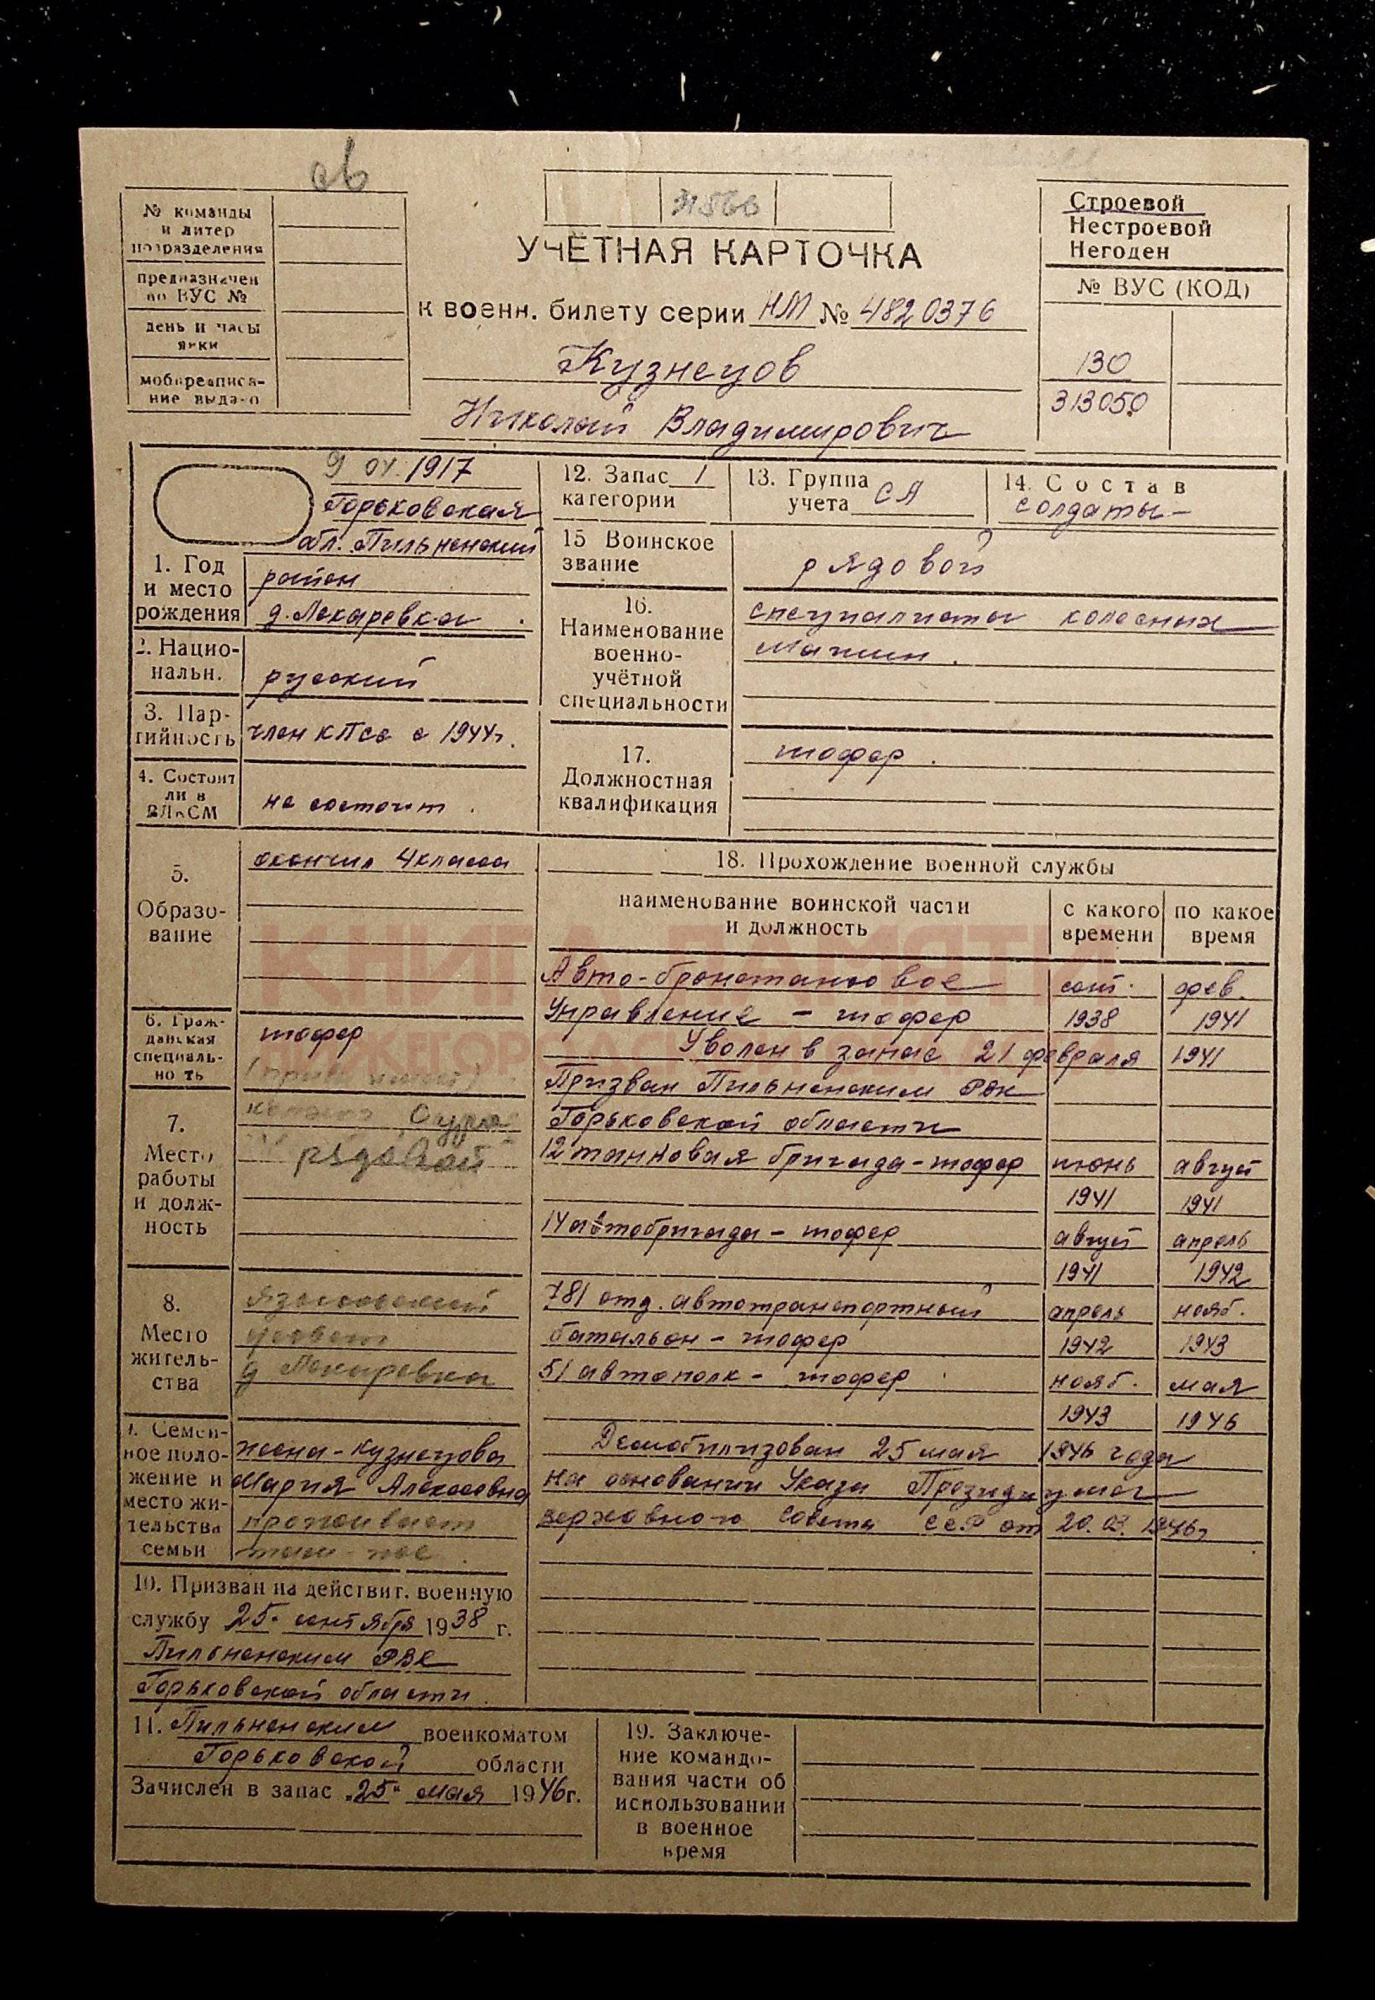 № команды
и литер
подразделения
предназначен
по ВУС №
день и часы
явки
мобпредписа-
ние выдано
УЧЁТНАЯ КАРТОЧКА
к военн. билету серии НМ № 4820376
Кузнецов
Николай Владимирович
Строевой
Нестроевой
Негоден
№ ВУС (КОД)
130
313050
1917
Горьковская
обл. Пильненский
1. Год
и место
рождения
район
д. Лекаревка.
2. Нацио-
нальн.
русский
3. Пар-
тийность
член КПСС с 1944г.
4. Состоит
ли в
ВЛКСМ
не состоит.
5.
Образо-
вание
окончил 4 класса
6. Граж-
данская
специаль-
ность
шофер
7.
Место
работы
и долж-
ность
рядовой
8.
Место
житель-
ства
Языковский
д Лекаревка
9. Семей-
ное поло-
жение и
место жи-
тельства
семьи
жена - Кузнецова
Мария Алексеевна
проживает
там-же.
10. Призван на действит. военную
службу 25 сентября 1938 г.
Пильненским РВК
Горьковской области.
11. Пильненским военкоматом
Горьковской области
Зачислен в запас „25" мая 1946г.
12. Запас 1
категории
13. Группа
учета СА
14. Состав
солдаты-
15 Воинское
звание
рядовой
16.
Наименование
военно-
учётной
специальности
специалисты колесных
машин.
17.
Должностная
квалификация
шофер.
18. Прохождение военной службы
наименование воинской части
и должность
с какого
времени
по какое
время
Авто-бронетанковое сент. фев.
Управление - шофер 1938 1941
Уволен в запас 21 февраля 1941
Призван Пильненским РВК
Горьковской области
12 танковая бригада - шофер июнь август
1941 1941
14 автобригада - шофер август апрель
1941 1942
781 отд. автотранспортный апрель нояб.
батальон - шофер 1942 1943
51 автополк - шофер нояб. мая
1943 1946
Демобилизован 25 мая 1946 года
на основании Указа Президиума
верховного Совета СССР от 20.03.1946г
19. Заключе-
ние командо-
вания части об
использовании
в военное
время
КНИГА ПАМЯТИ
НИЖЕГОРОДСКОЙ ОБЛАСТИ